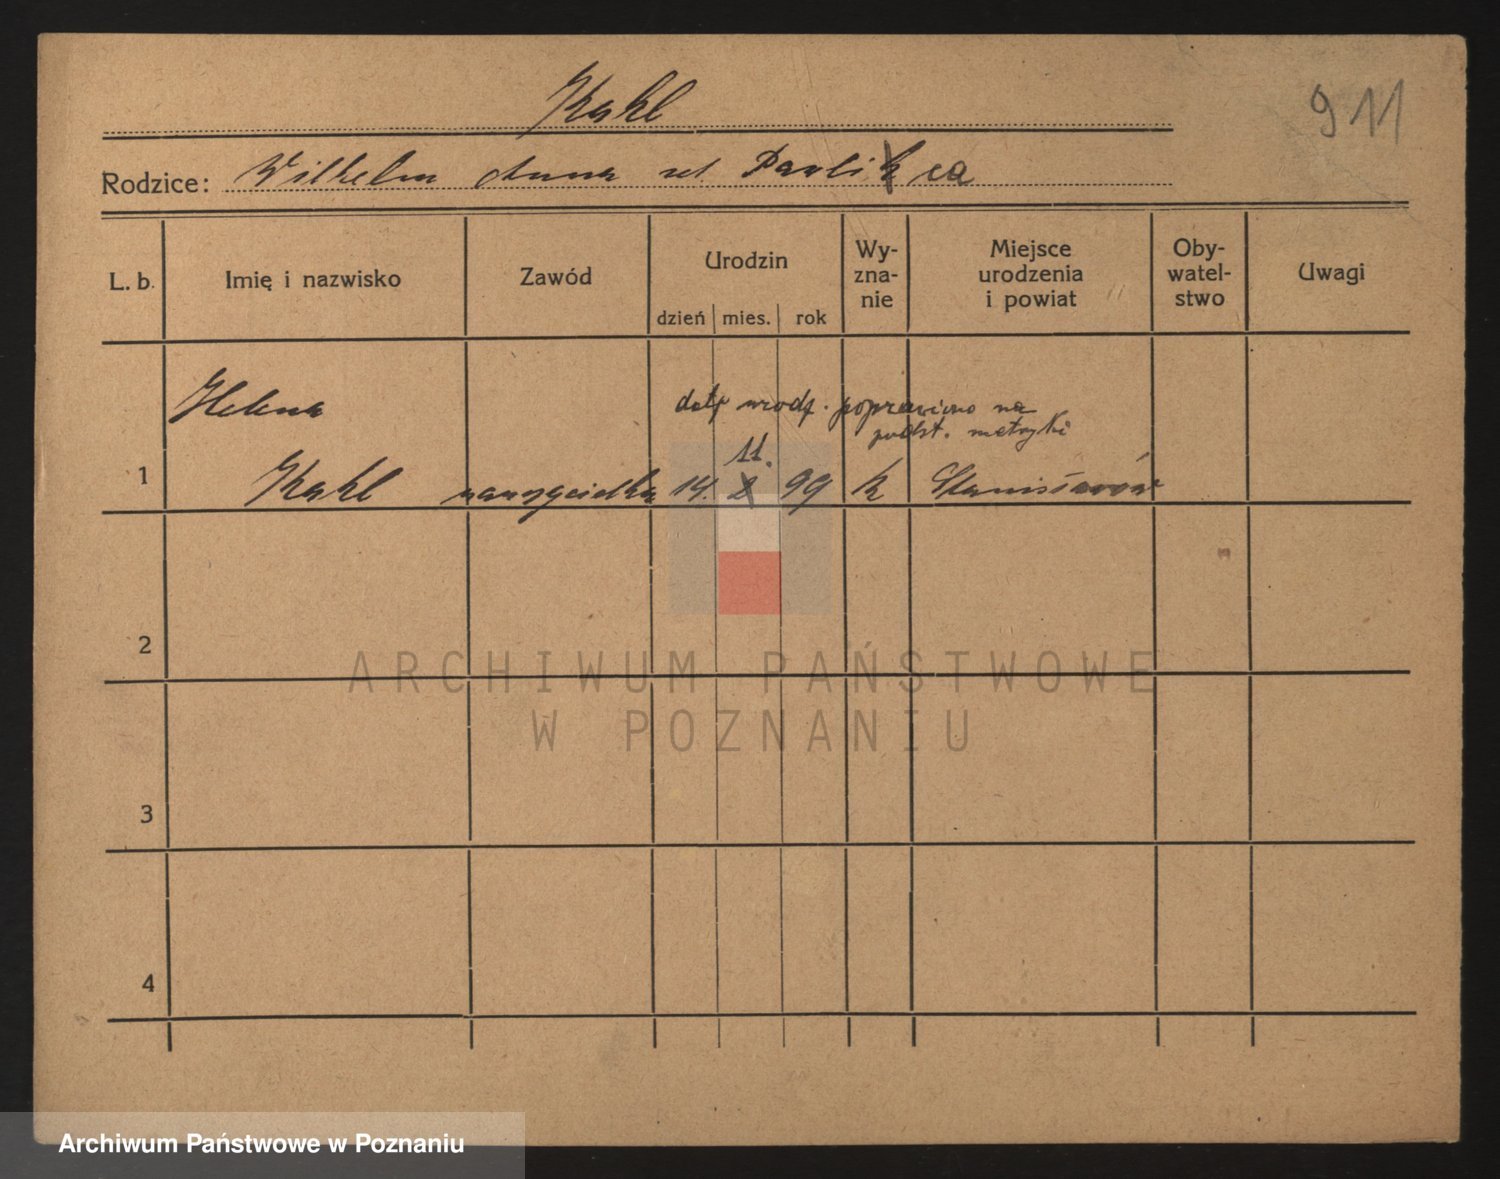 Kahl
911
Rodzice: Wilhelm Anna z d. Pavlica
L. b.
Imię i nazwisko
Zawód
Urodzin
dzień mies. rok
Wy-
zna-
nie
Miejsce
urodzenia
i powiat
Oby-
watel-
stwo
Uwagi
Helena
datę urodz. poprawiono na
podst. metryki
11.
1 Kahl nauczycielka 14. 99 k Stanisławów
2
ARCHIWUM PAŃSTWOWE
W POZNANIU
3
4
Archiwum Państwowe w Poznaniu